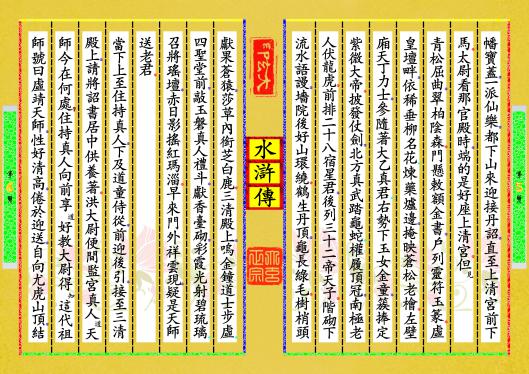 幡寶蓋一派仙樂都下山來迎接丹詔直至上清宮前下
馬太尉看那宮殿時端的是好座上清宮但見
青松屈曲翠柏陰森門懸敕額金書戶列靈符玉篆虛
皇壇畔依稀垂柳名花煉藥爐邊掩映蒼松老檜左壁
廂天丁力士參隨著太乙真君右勢下玉女金童簇捧定
紫微大帝披發仗劍北方真武踏龜蛇趿履頂冠南極老
人伏龍虎前排二十八宿星君後列三十二帝天子階砌下
流水潺湲牆院後好山環繞鶴生丹頂龜長綠毛樹梢頭
水滸傳
獻果蒼猿莎草內銜芝白鹿三清殿上鳴金鐘道士步虛
四聖堂前敲玉磬真人禮斗獻香臺砌彩霞光射碧琉璃
召將瑤壇赤日影搖紅瑪瑙早來門外祥雲現疑是天師
送老君
當下上至住持真人下及道童侍從前迎後引接至三清
殿上請將詔書居中供養著洪太尉便問監宮真人道天
師今在何處住持真人向前稟道好教太尉得知這代祖
師號曰虛靖天師性好清高倦於迎送自向龍虎山頂結